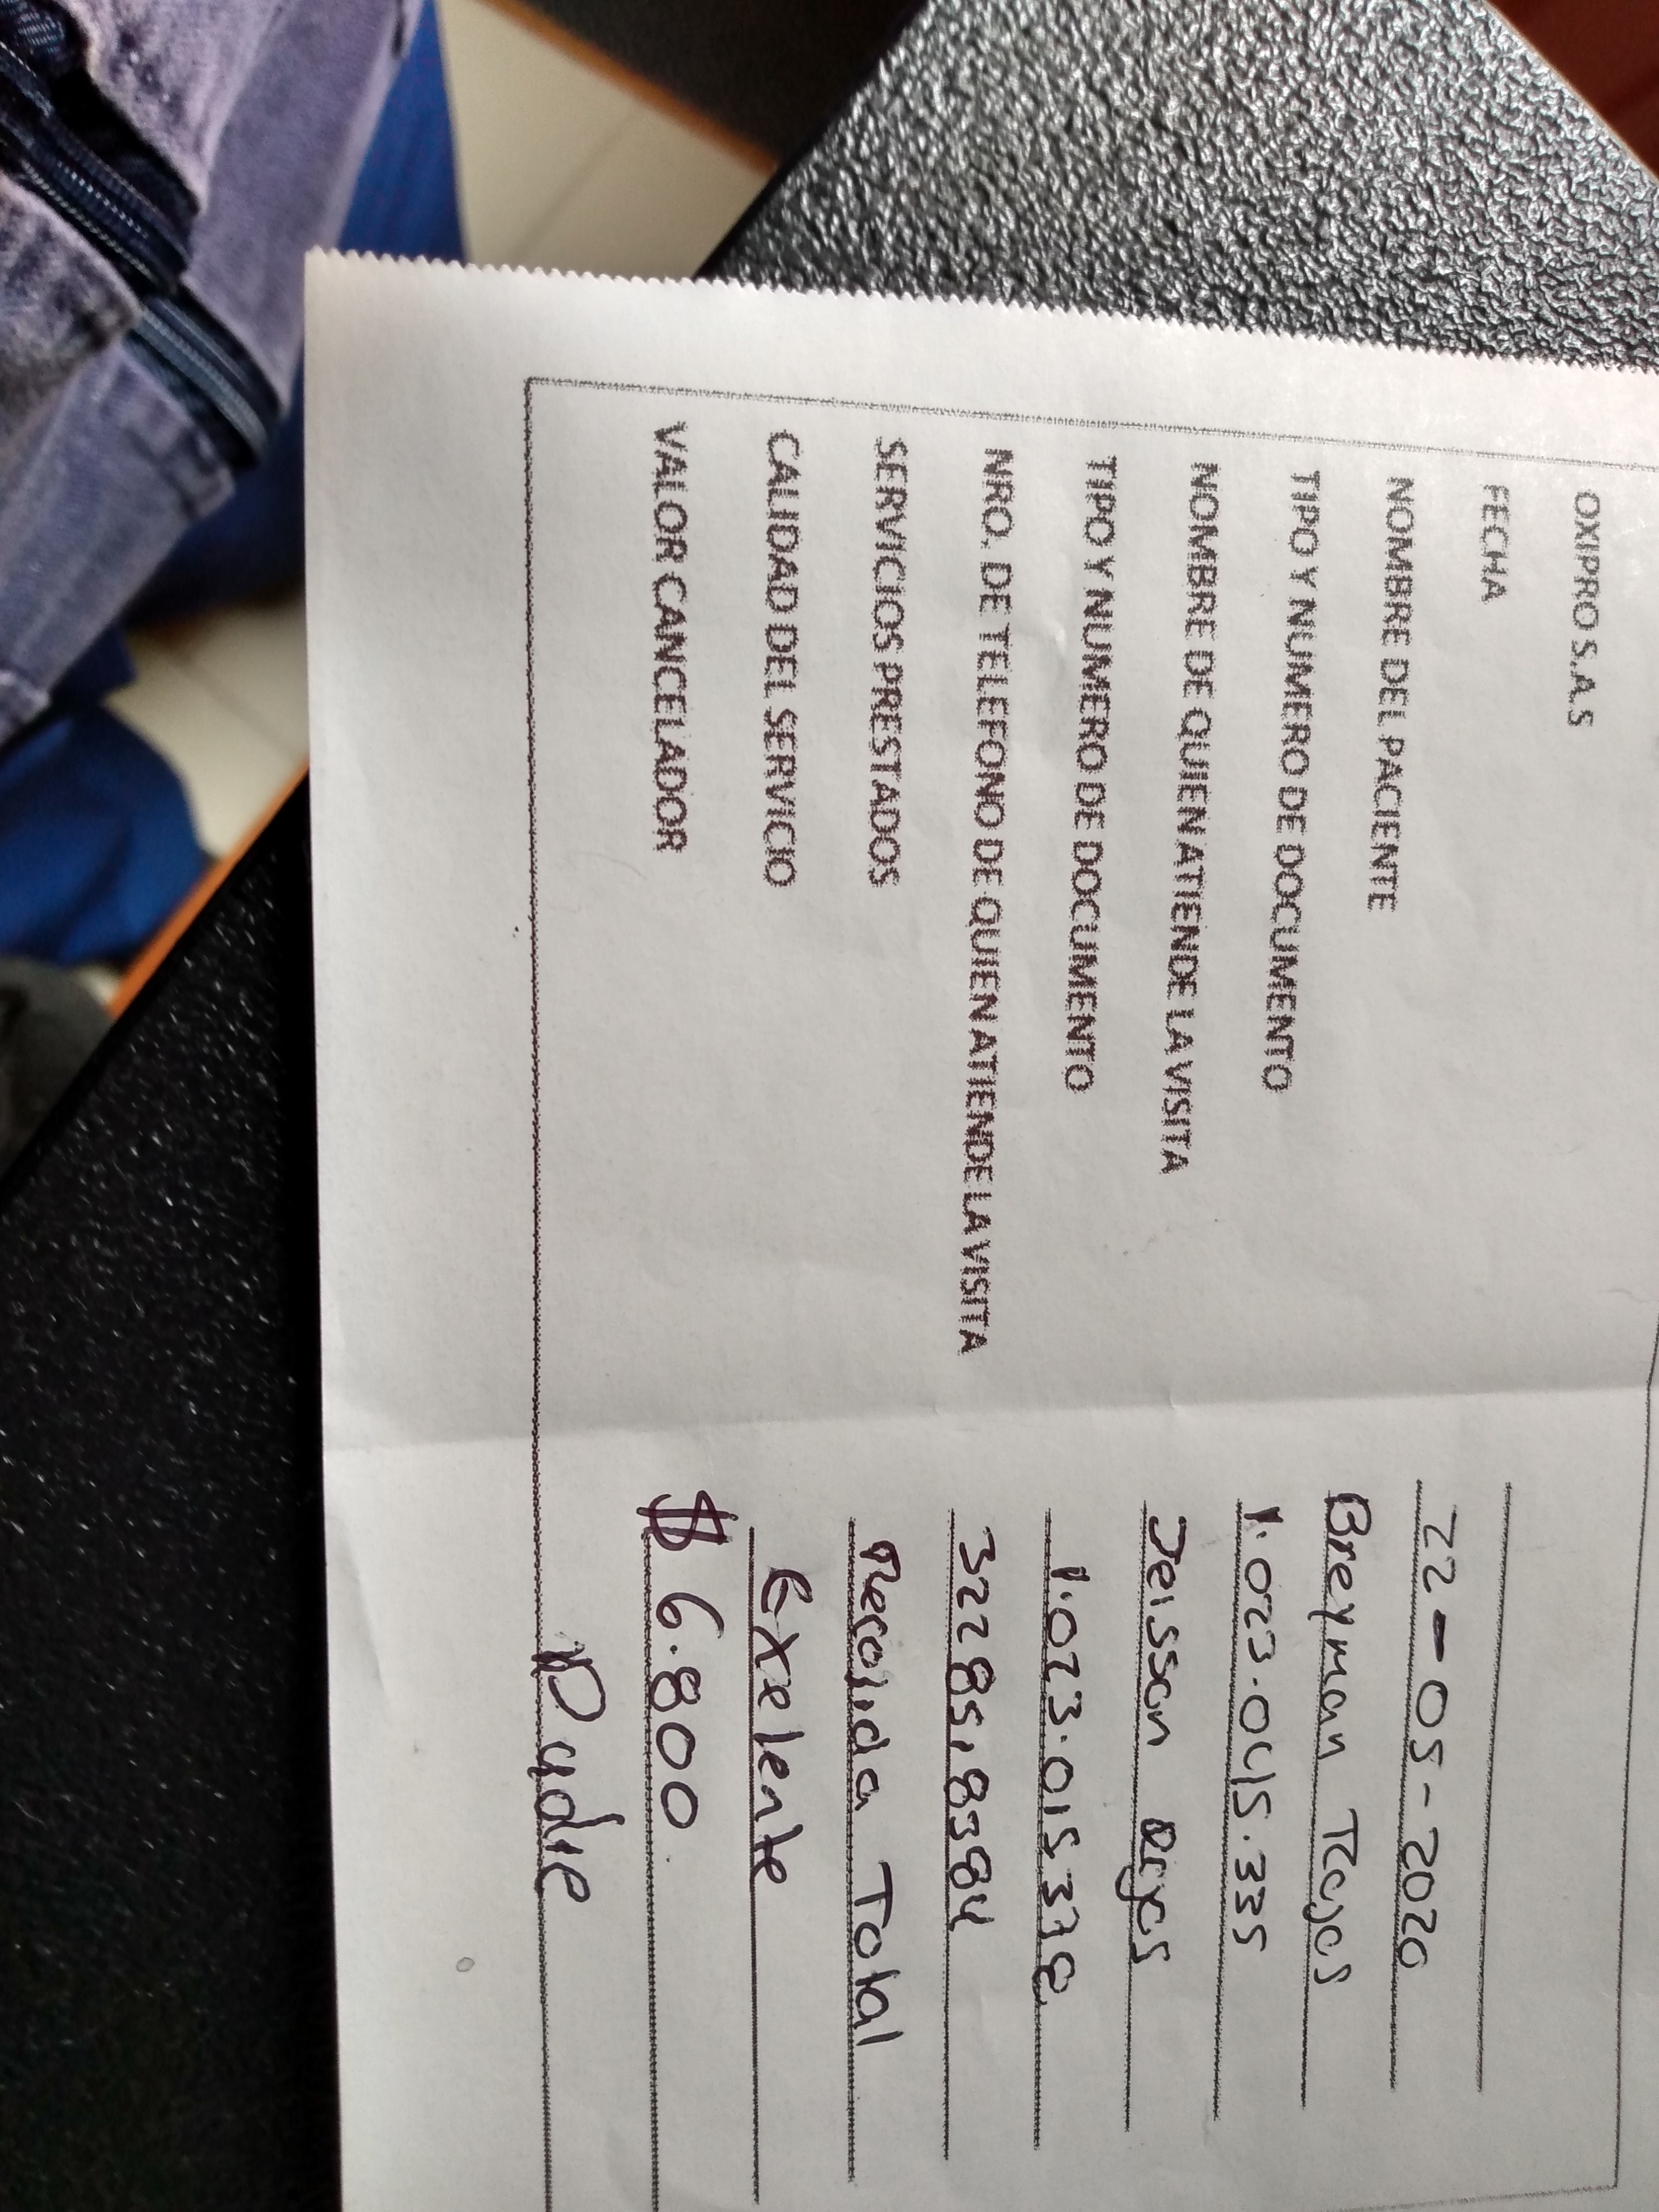 OXIPRO S.A.S
FECHA 22-05-2020
NOMBRE DEL PACIENTE Breyman
TIPO Y NUMERO DE DOCUMENTO 1.023.045.335
NOMBRE DE QUIEN ATIENDE LA VISITA Jeisson
TIPO Y NUMERO DE DOCUMENTO
NRO. DE TELEFONO DE QUIEN ATIENDE LA VISITA
SERVICIOS PRESTADOS Recojida Total
CALIDAD DEL SERVICIO Exelente
VALOR CANCELADOR $ 6.800
Padre